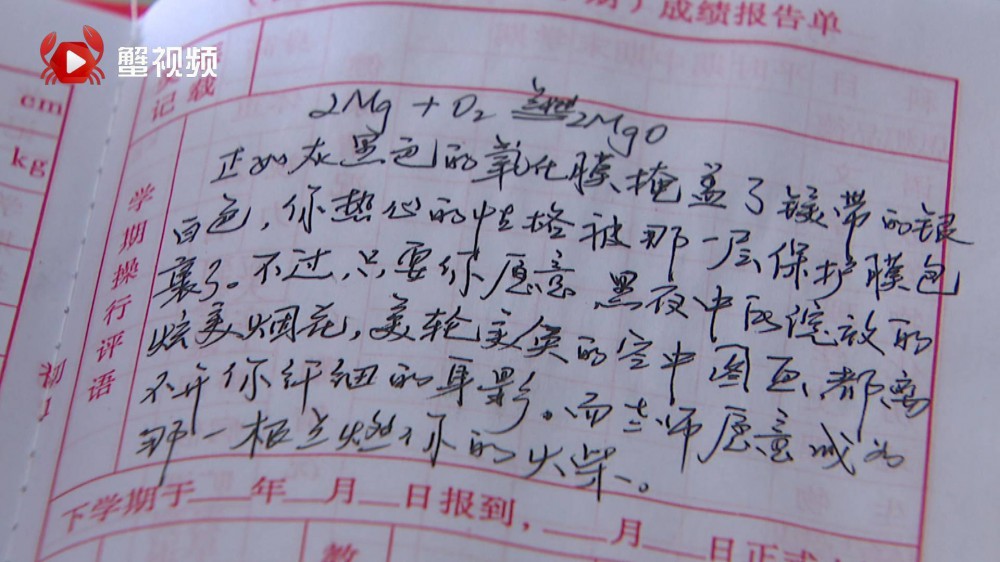 蟹视频
期）成绩报告单
记载
cm
kg
2Mg + O₂ 点燃 2MgO
正如灰黑色的氧化膜掩盖了镁带的银
白色，你热心的性格被那一层保护膜包
裹了。不过，只要你愿意，黑夜中所绽放的
炫美烟花，美轮美奂的空中图画，都离
不开你纤细的身影。而老师愿意成为
那一根点燃你的火柴。
学期操行评语
初
下学期于___年___月___日报到，___月___日正式
教